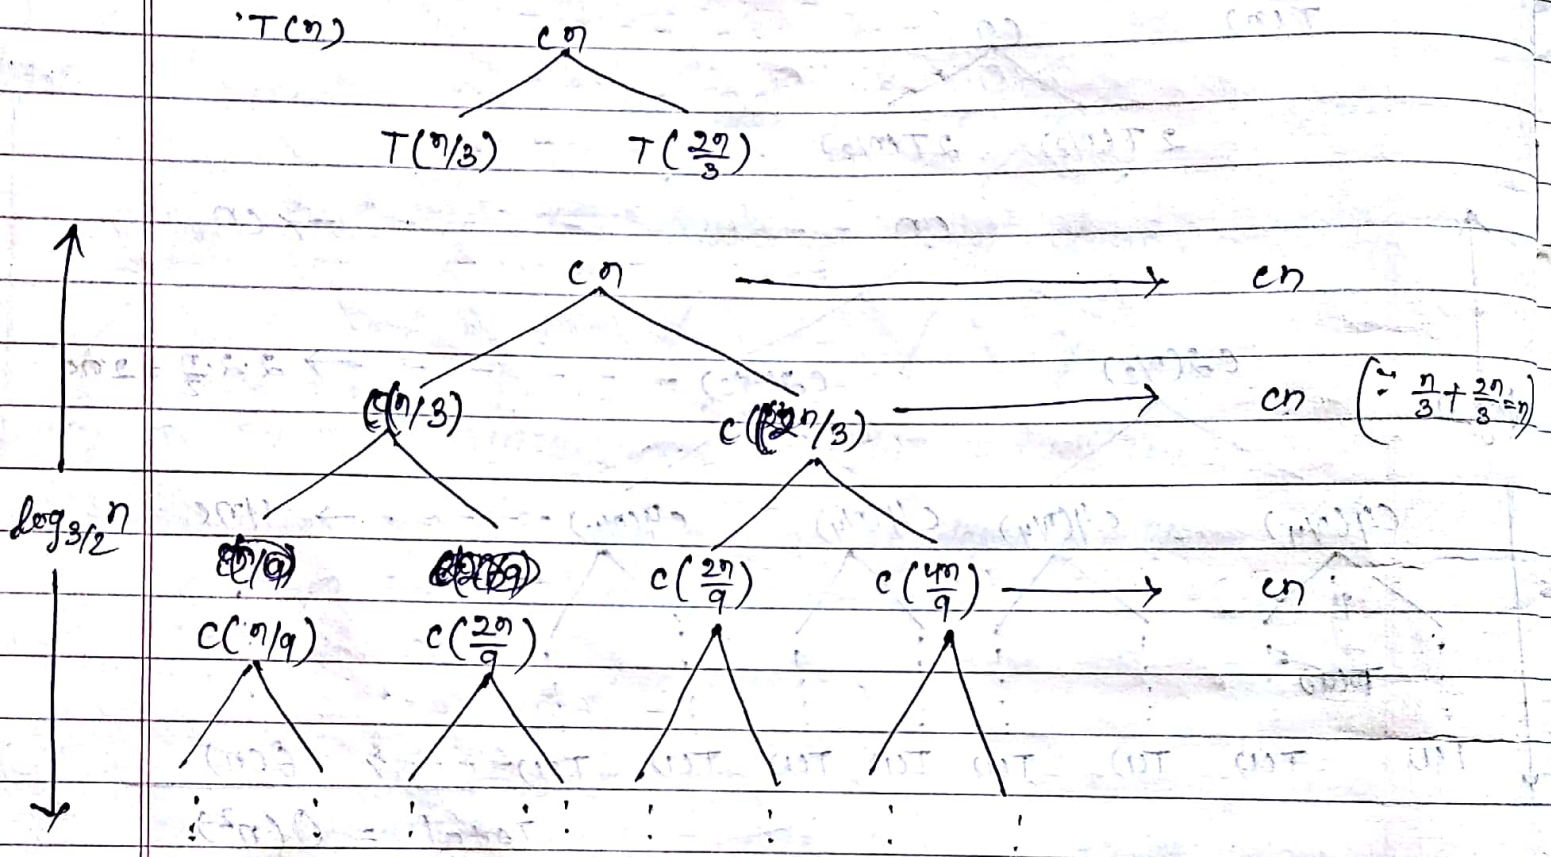 T(n) cn
T(n/3) T(2n/3)
cn → cn
C(n/3) C(2n/3) → cn (∵ n/3 + 2n/3 = n)
log3/2 n
C(2n/9) C(4n/9) → cn
C(n/9) C(2n/9)